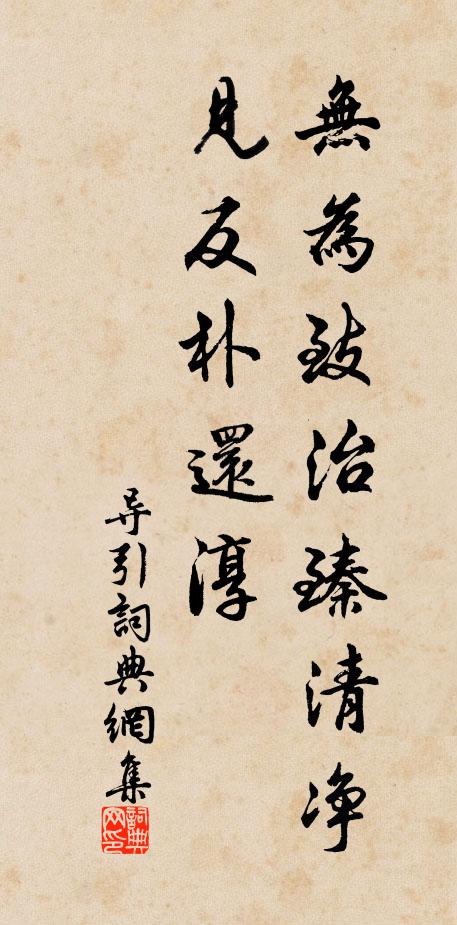 無為致治臻清净
見反朴還淳
导引詞典網集
詞典网印